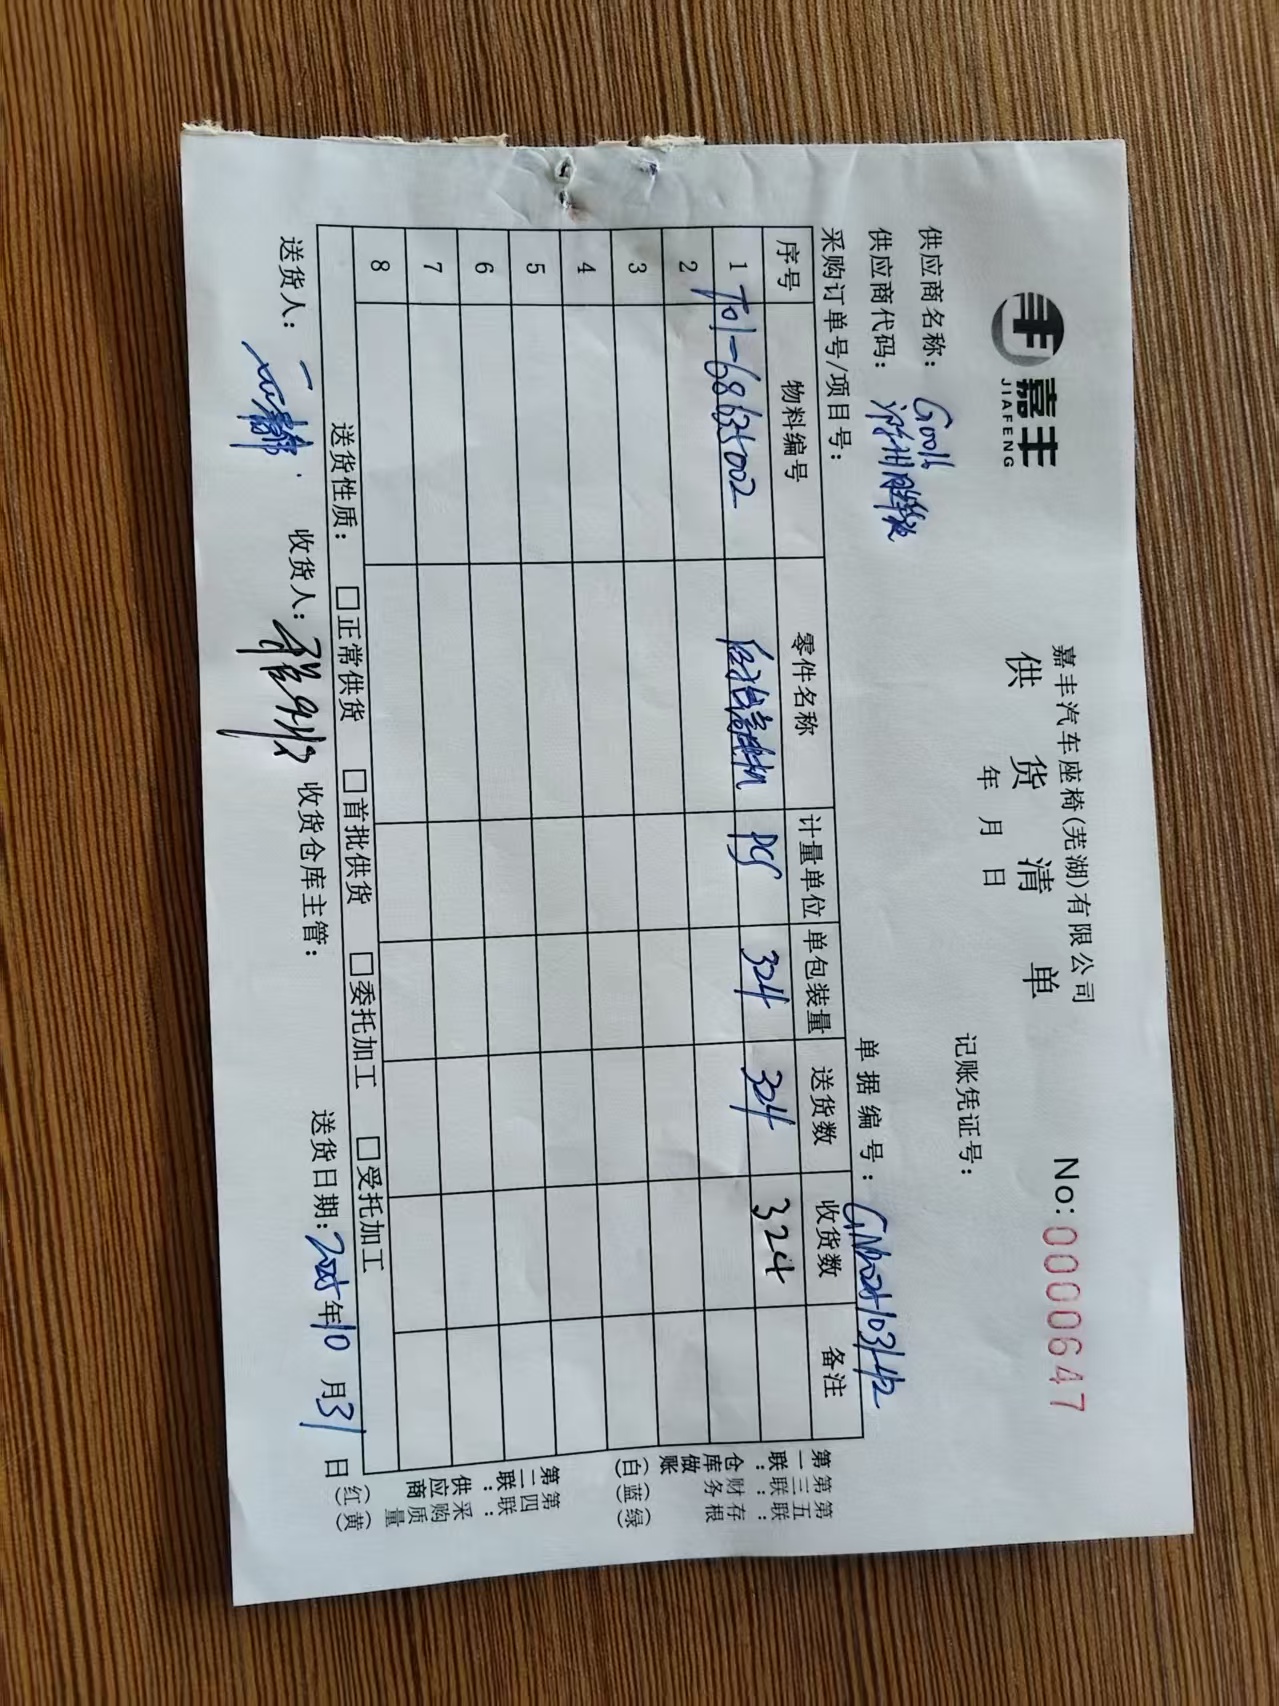 嘉丰
JIAFENG
嘉丰汽车座椅(芜湖)有限公司
No:0000647
供货清单
年 月 日
记账凭证号:
供应商名称: G0016
供应商代码:
采购订单号/项目号:
单据编号:
序号 物料编号 零件名称 计量单位 单包装量 送货数 收货数 备注
1 T01-68635002 PCS 324 324 324
2
3
4
5
6
7
8
送货性质: □正常供货 □首批供货 □委托加工 □受托加工
送货人: 收货人: 收货仓库主管: 送货日期:2025年10月31日
第一联:仓库做账(白)
第三联:财务(蓝)
第五联:存根(绿)
第二联:供应商(红)
第四联:采购质量(黄)